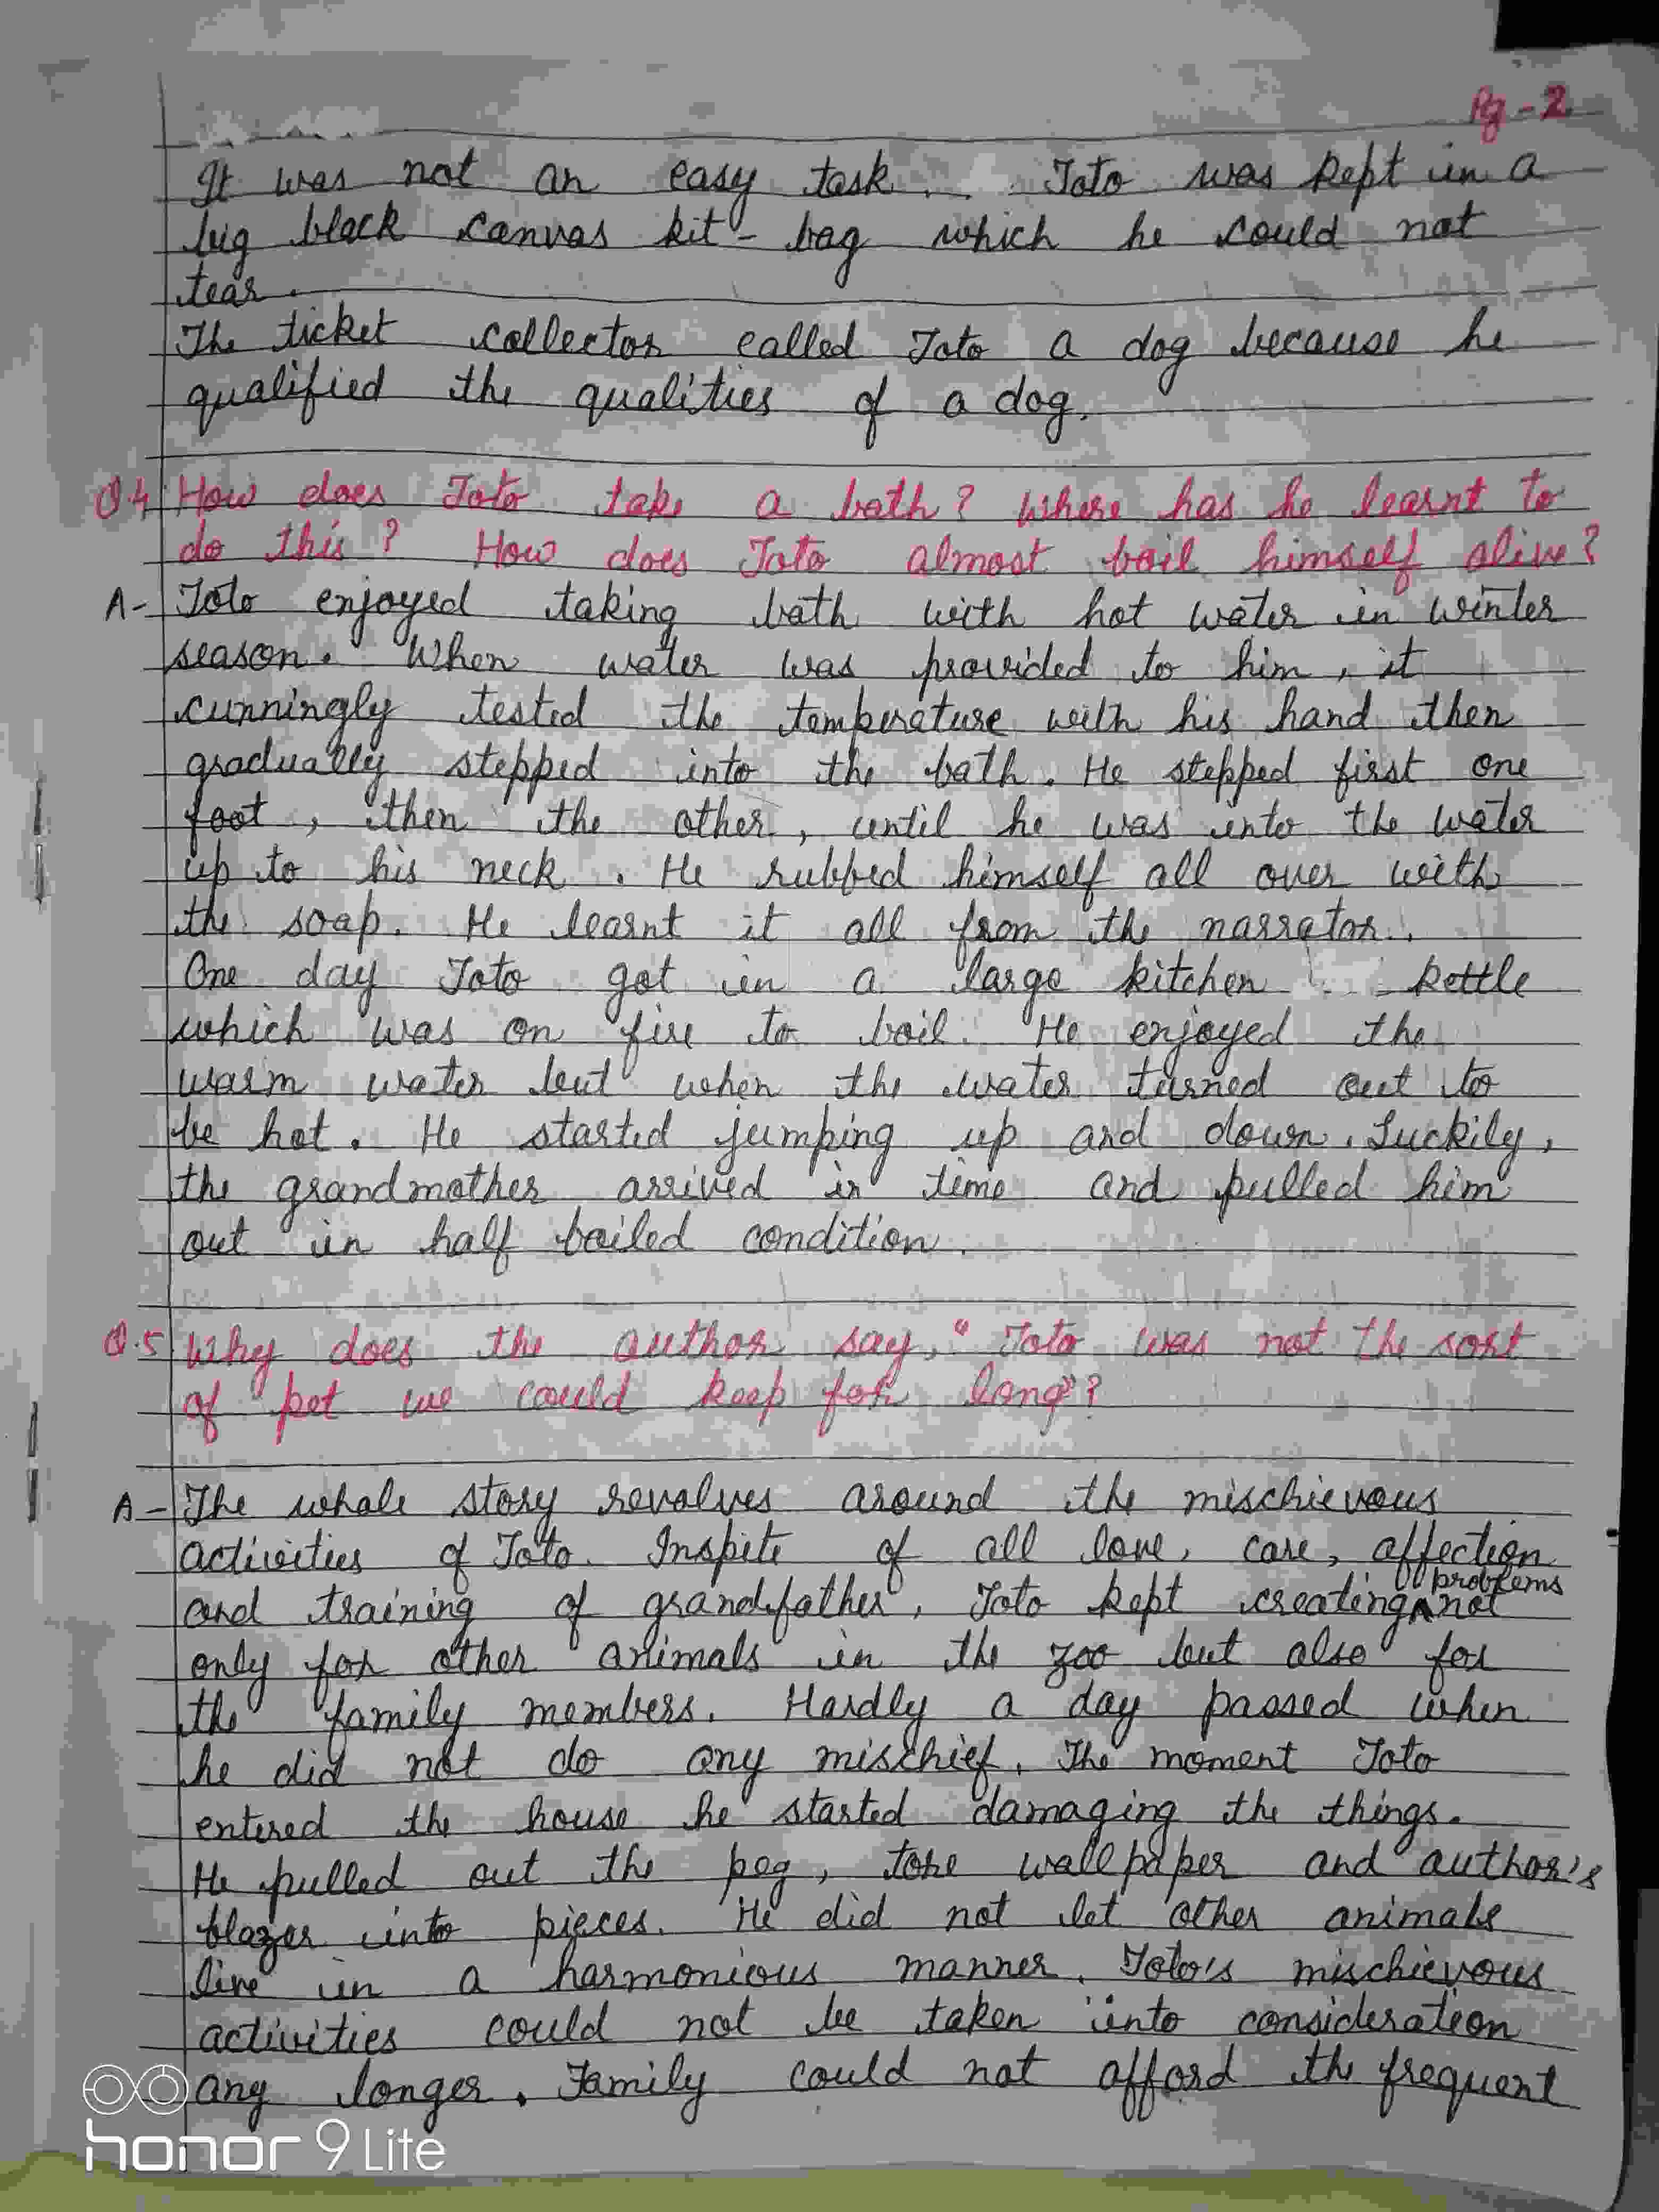 Pg - 2
It was not an easy task. Toto was kept in a
big black canvas kit - bag which he could not
tear.
The ticket collector called Toto a dog because he
qualified the qualities of a dog.
Q.4 How does Toto take a bath? Where has he learnt to
do this? How does Toto almost boil himself alive?
A- Toto enjoyed taking bath with hot water in winter
season. When water was provided to him, it
cunningly tested the temperature with his hand then
gradually stepped into the bath. He stepped first one
foot, then the other, until he was into the water
up to his neck. He rubbed himself all over with
the soap. He learnt it all from the narrator.
One day Toto got in a large kitchen kettle
which was on fire to boil. He enjoyed the
warm water but when the water turned out to
be hot. He started jumping up and down. Luckily,
the grandmother arrived in time and pulled him
out in half boiled condition.
Q.5 Why does the author say, "Toto was not the sort
of pet we could keep for long"?
A- The whole story revolves around the mischievous
activities of Toto. Inspite of all love, care, affection
and training of grandfather, Toto kept creating problems not
only for other animals in the zoo but also for
the family members. Hardly a day passed when
he did not do any mischief. The moment Toto
entered the house he started damaging the things.
He pulled out the peg, tore wallpaper and author's
blazer into pieces. He did not let other animals
live in a harmonious manner. Toto's mischievous
activities could not be taken into consideration
any longer. Family could not afford the frequent
honor 9 Lite